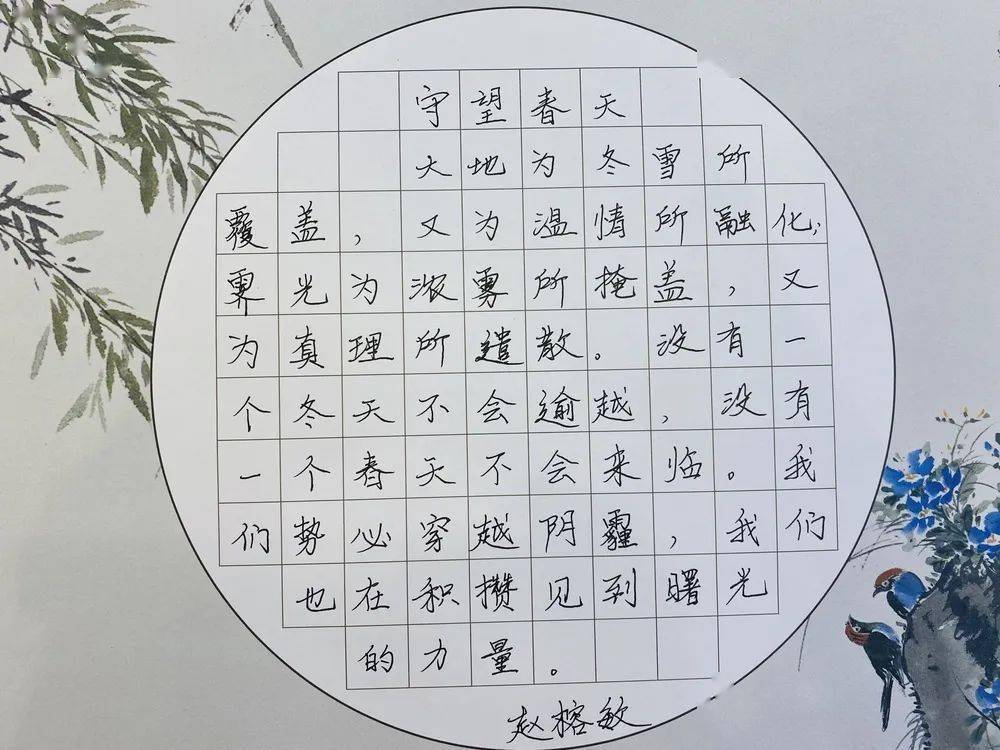 守望春天
大地为冬雪所
覆盖，又为温情所融化；
霁光为浓雾所掩盖，又
为真理所遣散。没有一
个冬天不会逾越，没有
一个春天不会来临。我
们势必穿越阴霾，我们
也在积攒见到曙光
的力量。
赵榕敏